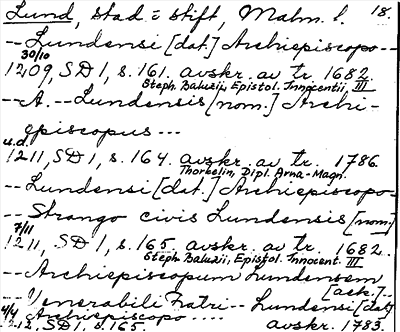 Lund, stad o stift, Malm. l. 18.
-- Lundensi [dat.] Archiepiscopo --
30/10
1209, SD 1, s. 161. avskr. av tr. 1682.
Steph. Baluzii, Epistol. Innocentii, III
-- A. -- Lundensis [nom.] Archi-
episcopus ---
u.d.
1211, SD 1, s. 164. avskr. av tr. 1786.
Thorkelin, Dipl. Arna-Magn.
-- Lundensi [dat.] Archiepiscopo --
-- Strango civis Lundensis [nom.]
7/11
1211, SD 1, s. 165. avskr. av tr. 1682.
Steph. Baluzii, Epistol. Innocent. III
-- Archiepiscopum Lundensem
[ack.] --
-- Venerabili Fratri -- Lundensi [dat.]
Archiepiscopo ----
4/4
1212, SD 1, s. 165. avskr. 1783.